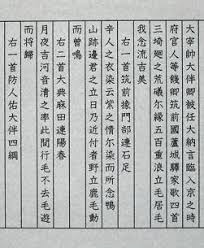 大宰帥大伴卿被任大納言臨入京之時
府官人等餞卿筑前國蘆城驛家歌四首
三埼廻之荒礒尓縁五百重浪立毛居毛
我念流吉美
右一首筑前掾門部連石足
辛人之衣染云紫之情尓染而所念鴨
山跡邊君之立日乃近付者野立鹿毛動
而曽鳴
右二首大典麻田連陽春
月夜吉河音清之率此間行毛不去毛遊
而将歸
右一首防人佑大伴四綱